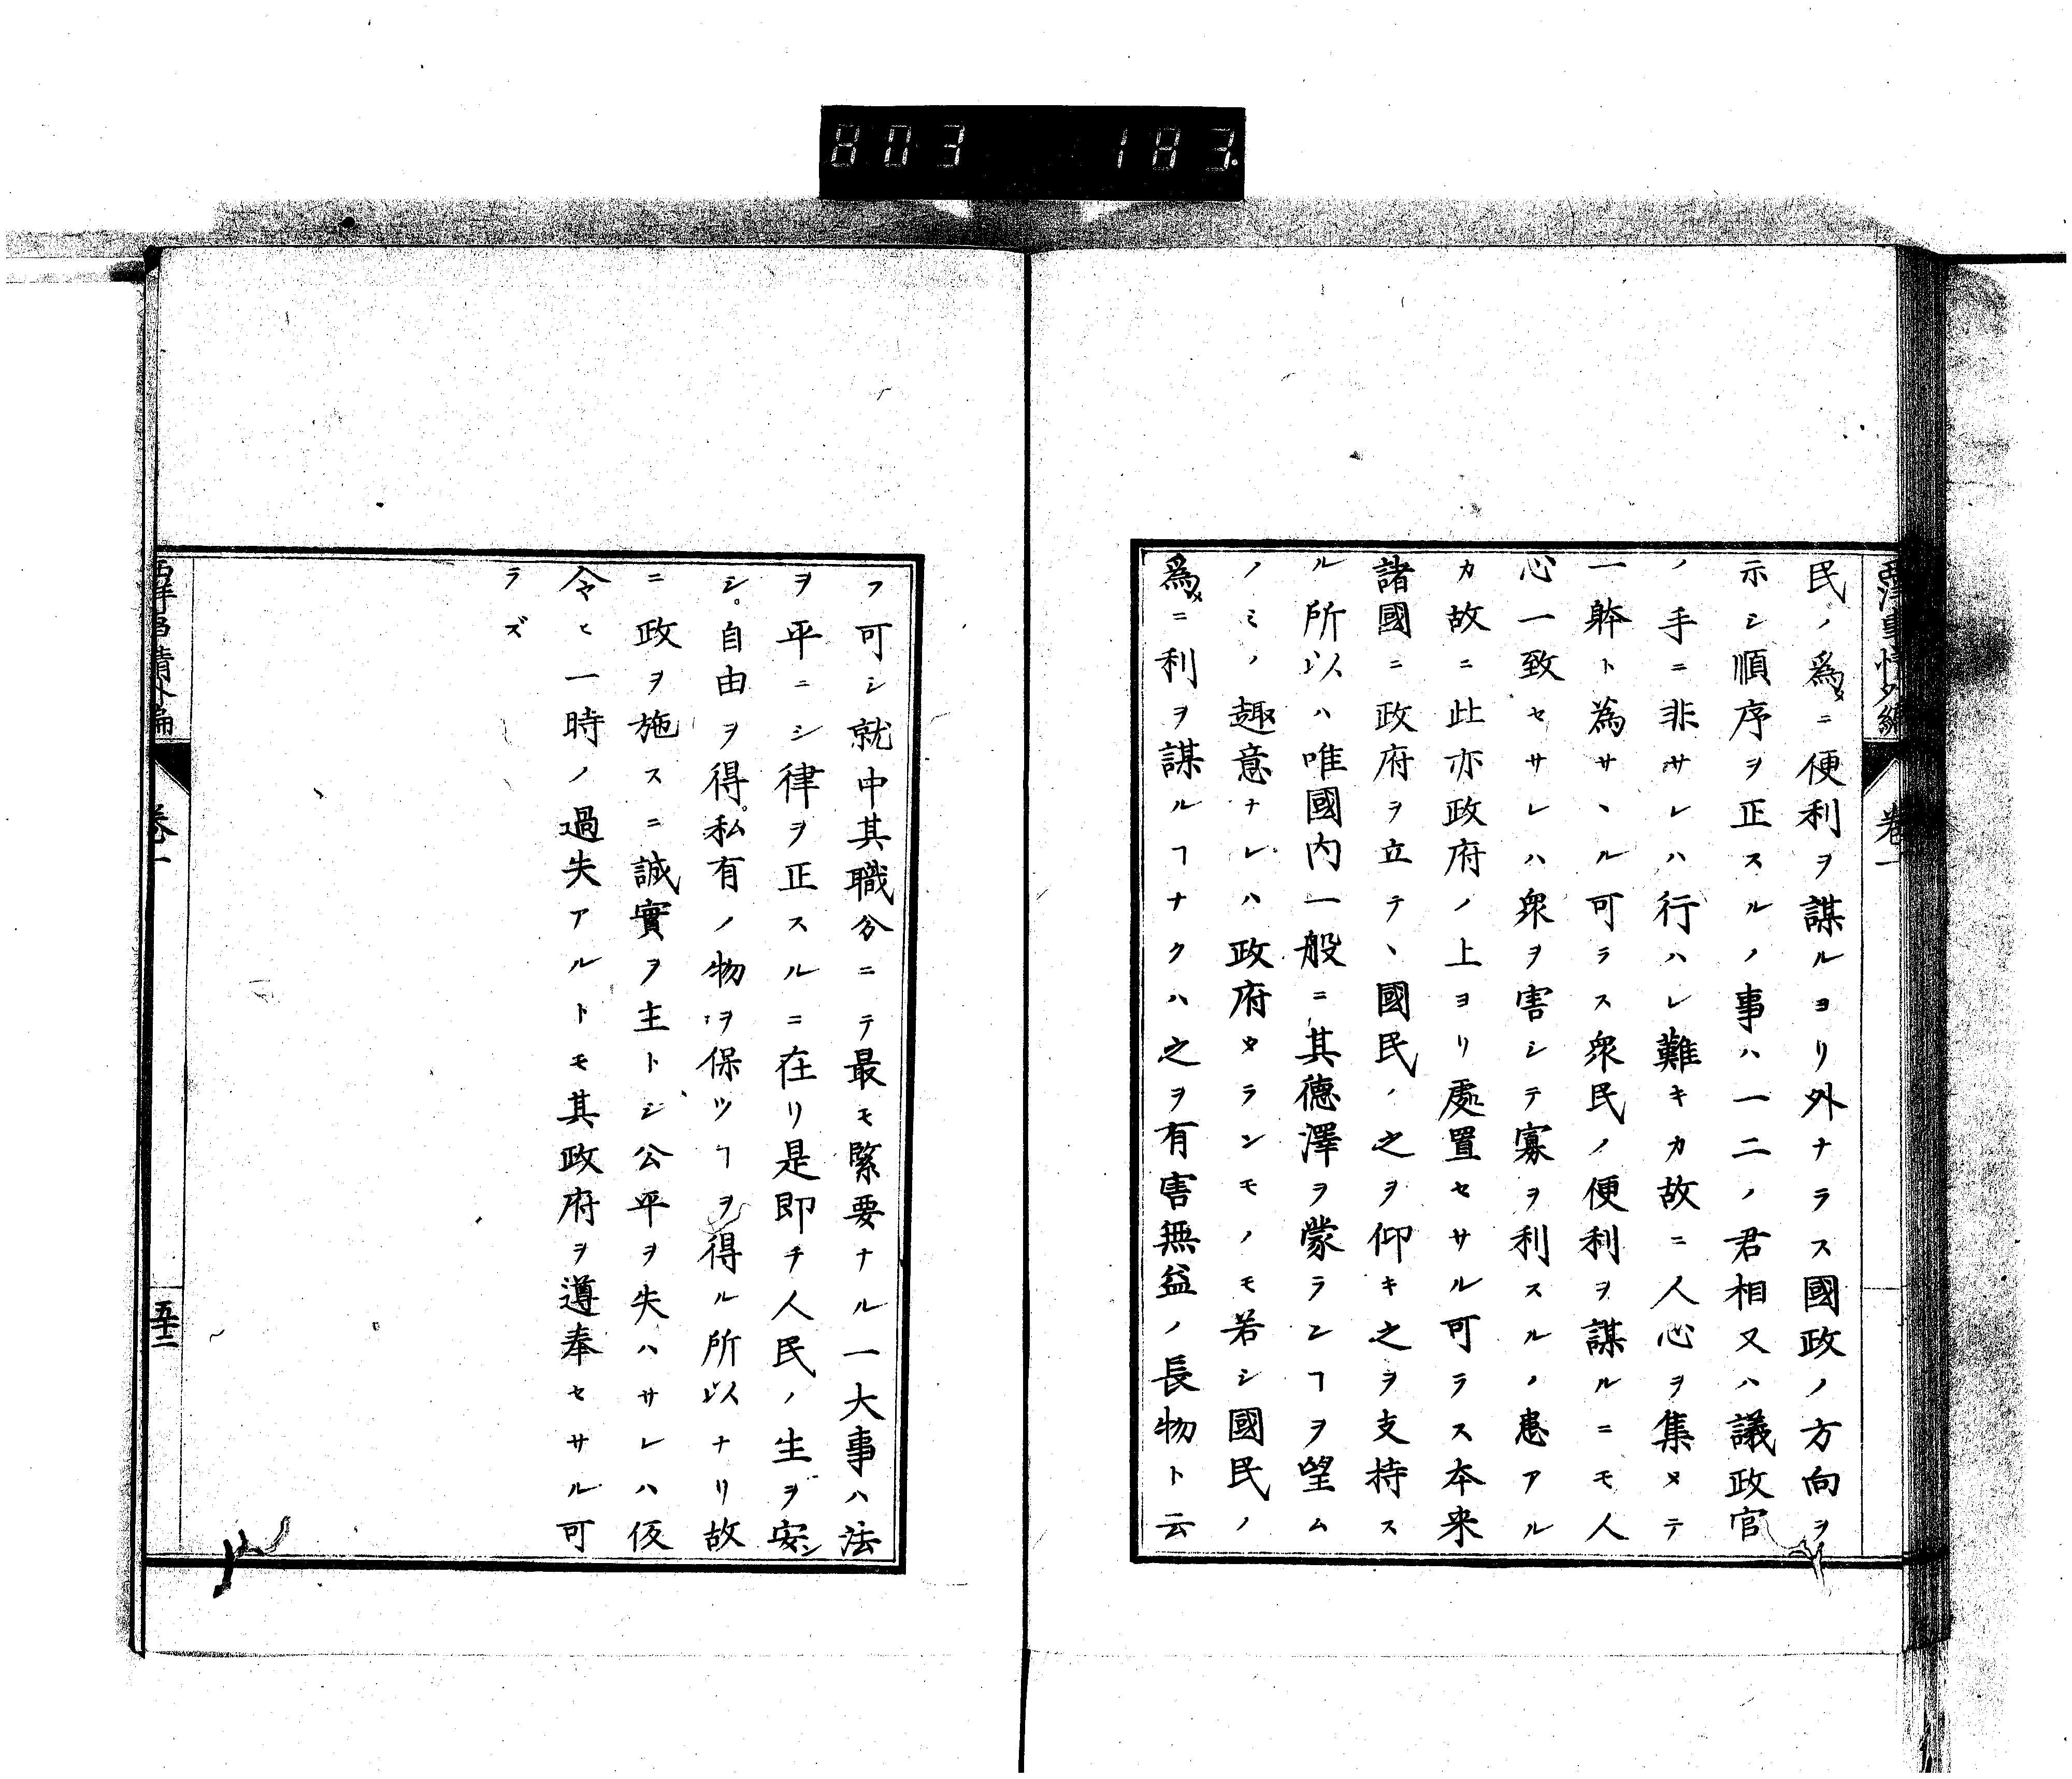 803 183.
西洋事情外編 卷一
民ノ爲メニ便利ヲ謀ルヨリ外ナラス國政ノ方向ヲ
示シ順序ヲ正スルノ事ハ一二ノ君相又ハ議政官
ノ手ニ非サレハ行ハレ難キカ故ニ人心ヲ集メテ
一躰ト為サヽル可ラス衆民ノ便利ヲ謀ルニモ人
心一致セサレハ衆ヲ害シテ寡ヲ利スルノ患アル
カ故ニ此亦政府ノ上ヨリ處置セサル可ラス本来
諸國ニ政府ヲ立テヽ國民ノ之ヲ仰キ之ヲ支持ス
ル所以ハ唯國内一般ニ其德澤ヲ蒙ランヿヲ望ム
ノミノ趣意ナレハ政府タランモノモ若シ國民ノ
爲メニ利ヲ謀ルヿナクハ之ヲ有害無益ノ長物ト云
フ可シ就中其職分ニテ最モ緊要ナル一大事ハ法
ヲ平ニシ律ヲ正スルニ在リ是即チ人民ノ生ヲ安ン
シ。自由ヲ得。私有ノ物ヲ保ツヿヲ得ル所以ナリ故
ニ政ヲ施スニ誠實ヲ主トシ公平ヲ失ハサレハ仮
令ヒ一時ノ過失アルトモ其政府ヲ遵奉セサル可
ラズ
西洋事情外編 卷一 五十二